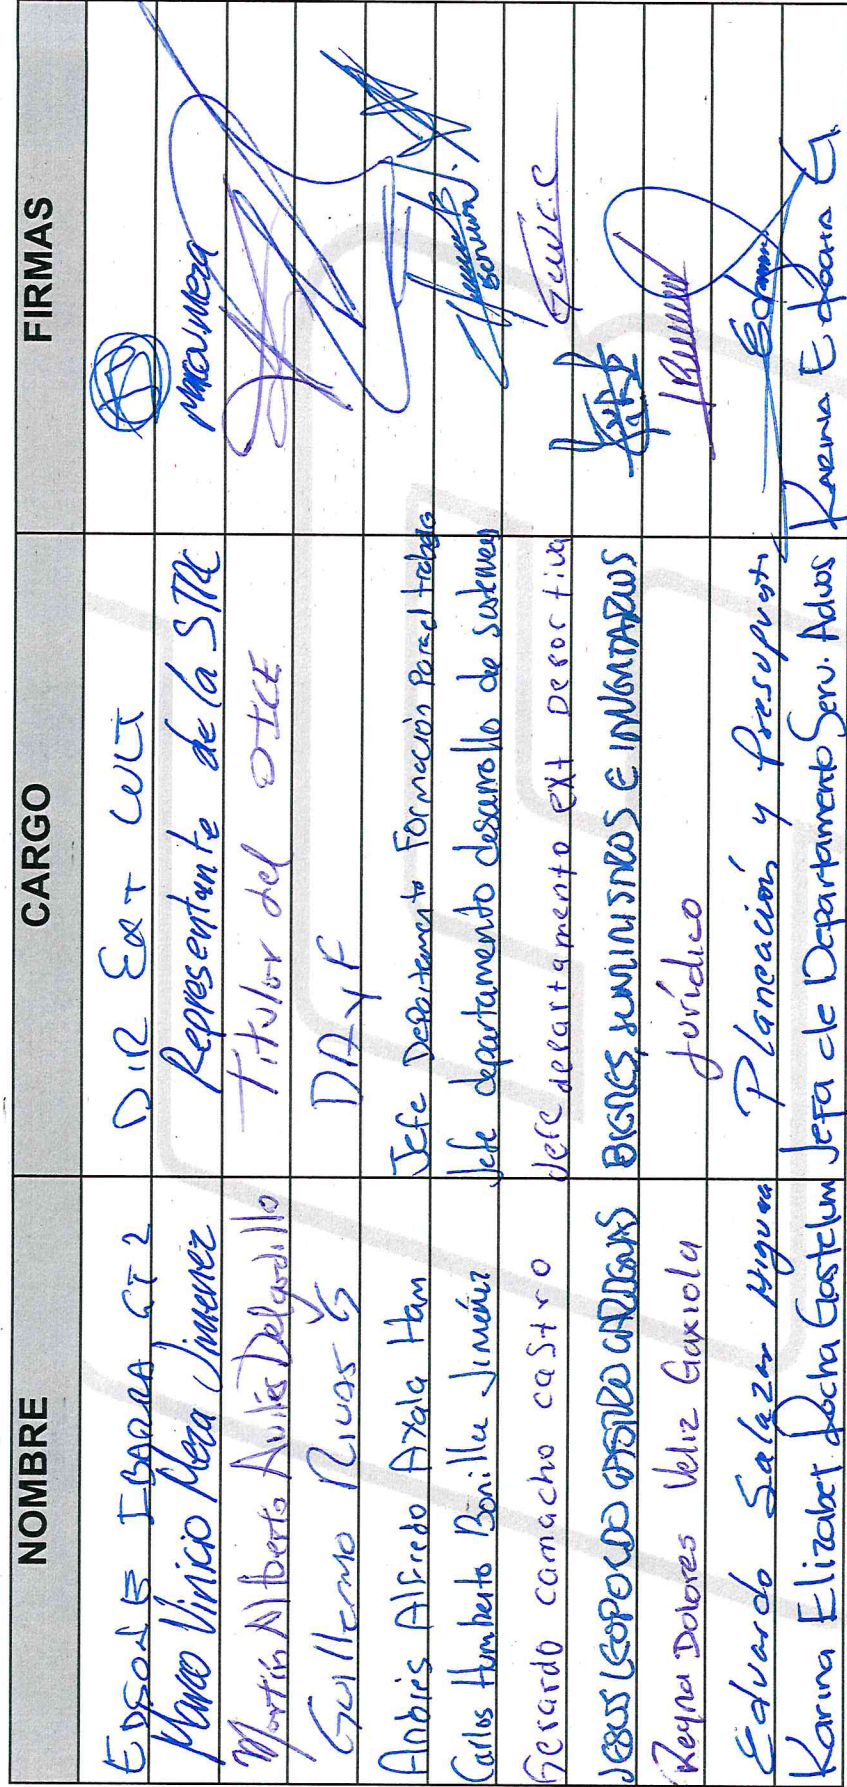 NOMBRE CARGO FIRMAS
EDSON E IBARRA DIR Ext
Marco Vinicio Meza Jimenez Representante de la STRC Marco V Meza
Martín Alberto Avilés Delgadillo Titular del OICE
Guillermo Rivas G DAyF
Andrés Alfredo Ayala Ham Jefe Departamento Formación Para el trabajo
Carlos Humberto Bonilla Jiménez Jefe departamento desarrollo de sistemas
Gerardo camacho castro Jefe departamento ext Deportiva
JESUS LEOPOLDO CASTRO BIENES, SUMINISTROS E INVENTARIOS
Reyna Dolores Veliz Gaxiola Jurídico
Eduardo Salazar Higuera Planeación y Presupuesto
Karina Elizabet Rocha Gastelum Jefa de Departamento Serv. Advos Karina E Rocha G.